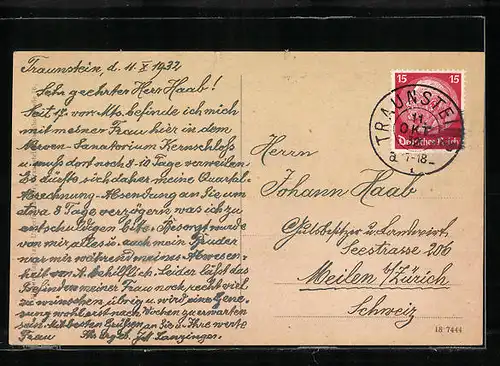 Traunstein, d. 11 X 1932
Sehr geehrter Herr Haab!
Seit 17. vor. Mts. befinde ich mich
mit meiner Frau hier in dem
Sanatorium Kernschloss
u. muss dort noch 8-10 Tage verweilen
Es dürfte sich daher meine Quartal-
Abrechnung-Absendung an Sie um
etwa 8 Tage verzögern was ich zu
entschuldigen bitte. Besorgt wurde
von mir alles u. auch mein Bruder
war mir während meines Abwesen-
heit behilflich. Leider lässt das
Befinden meiner Frau noch recht viel
zu wünschen übrig u. wird eine Gene-
sung wohl erst nach Wochen zu erwarten
sein. Mit besten Grüssen an Sie u. Ihre werte
Frau Ihr ergeb.
15 15
Deutsches Reich
TRAUNSTE
11
OKT
17-18
a
Herrn
Johann Haab
Gutsbesitzer u. Landwirt
Seestrasse 206
Meilen b/Zürich
Schweiz
18 7444